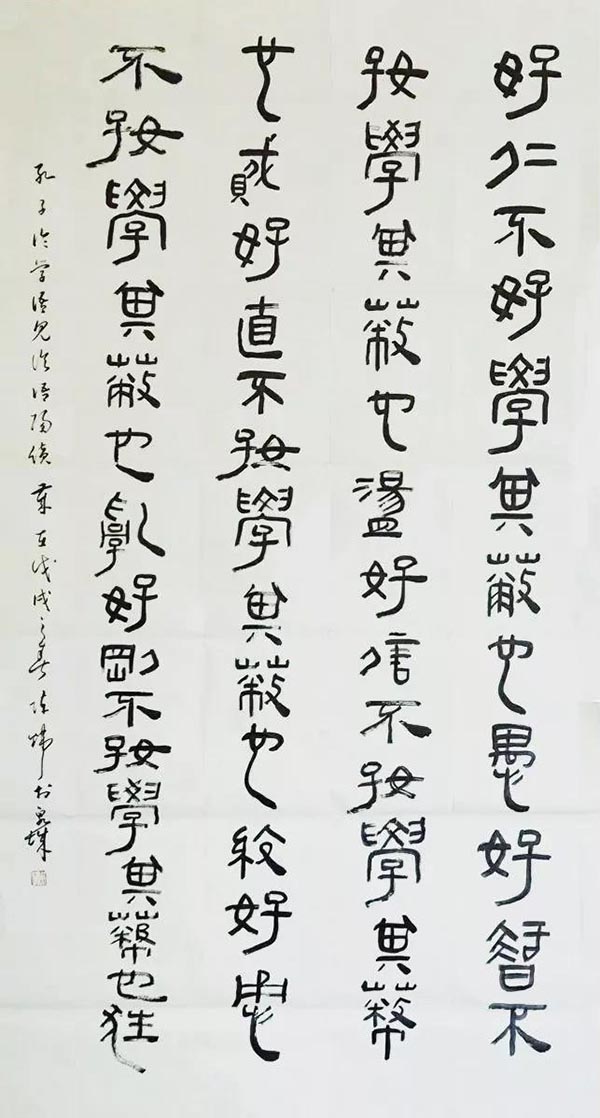 好仁不好學其蔽也愚好智不
好學其蔽也盪好信不好學其蔽
也賊好直不好學其蔽也絞好恿
不好學其蔽也亂好剛不好學其蔽也狂
孔子论学语见论语阳货 岁在戊戌之春 陈炜于泉城